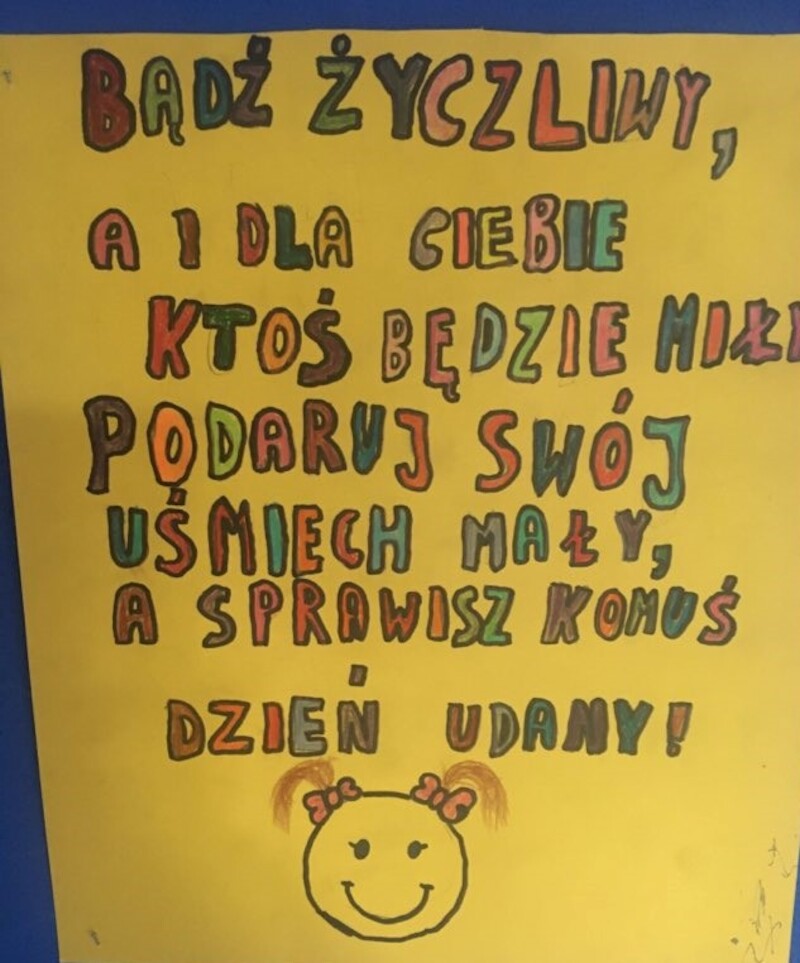 BĄDŹ ŻYCZLIWY,
A I DLA CIEBIE
KTOŚ BĘDZIE MIŁY
PODARUJ SWÓJ
UŚMIECH MAŁY,
A SPRAWISZ KOMUŚ
DZIEŃ UDANY!